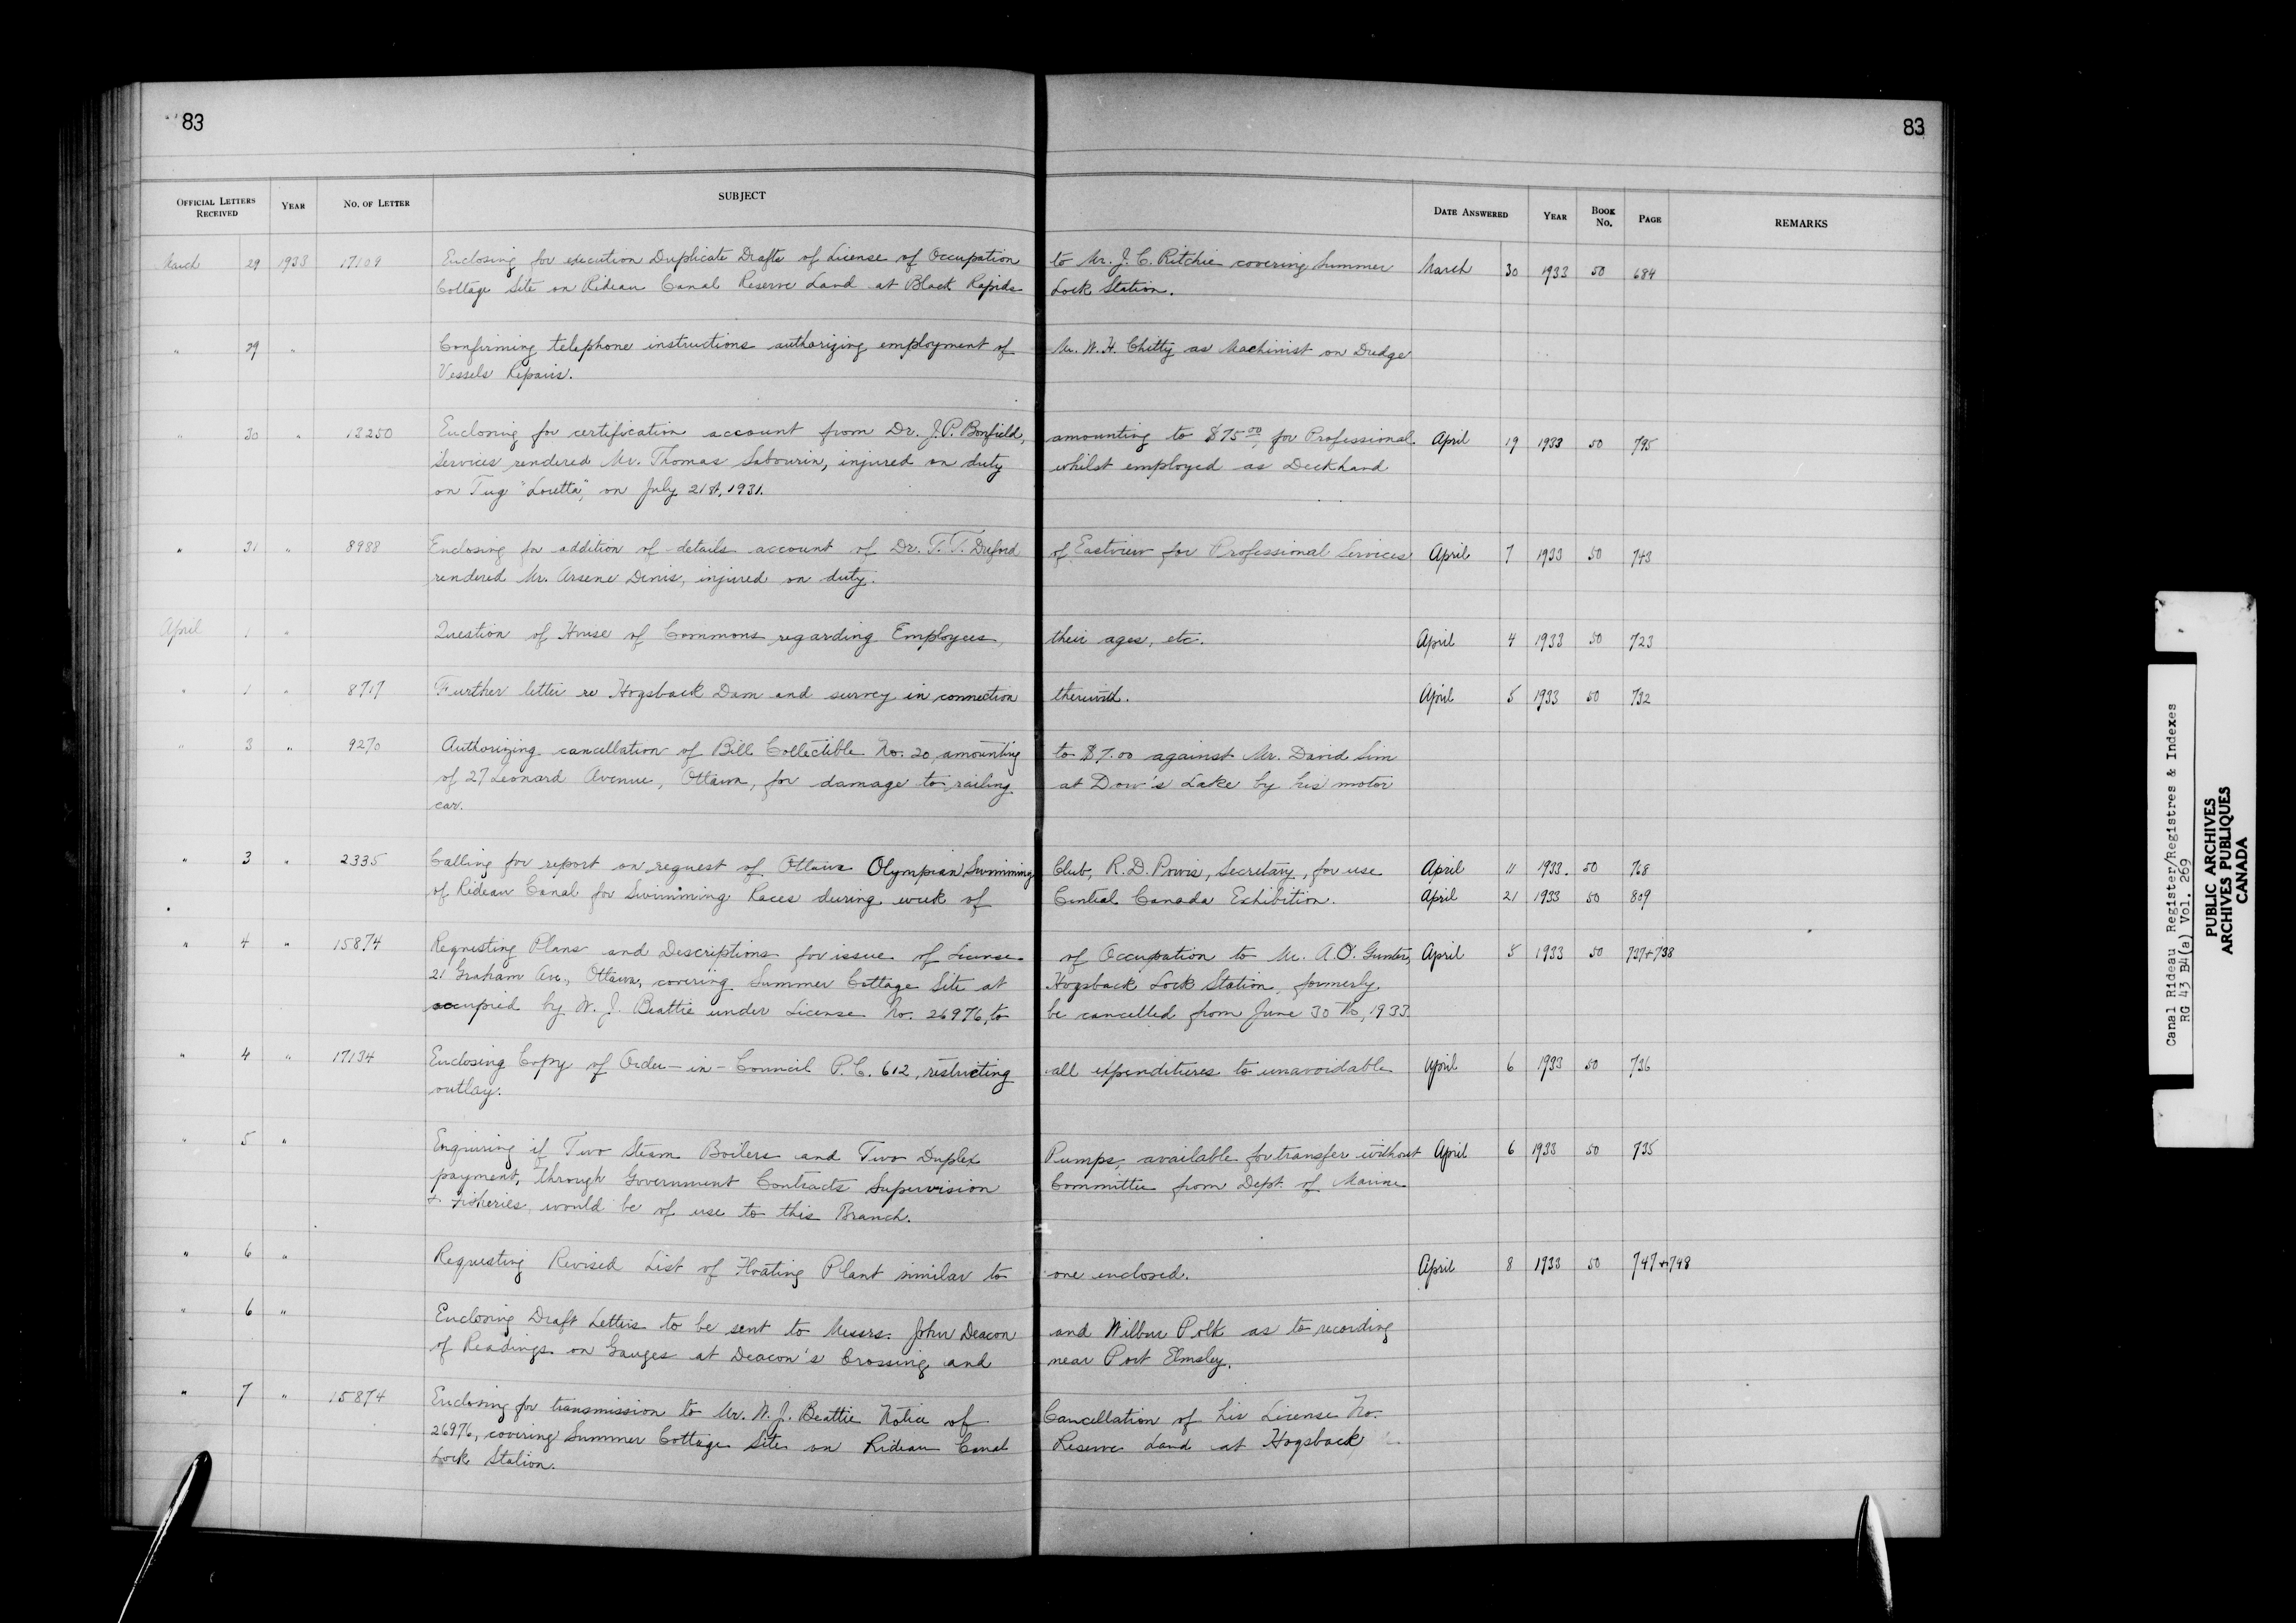 83
83
OFFICIAL LETTERS RECEIVED YEAR NO. OF LETTER SUBJECT DATE ANSWERED YEAR BOOK No. PAGE REMARKS
March 29 1933 17109 Enclosing for execution Duplicate Drafts of License of Occupation to Mr. J. C. Ritchie covering Summer March 30 1933 50 684
Cottage Site on Rideau Canal Reserve Land at Black Rapids Lock Station.
" 29 " Confirming telephone instructions authorizing employment of Mr. W. H. Chitty as Machinist on Dredge
Vessels Repairs.
" 30 " 13250 Enclosing for certification account from Dr. J. P. Bonfield, amounting to $75.00, for Professional April 19 1933 50 795
Services rendered Mr. Thomas Sabourin, injured on duty whilst employed as Deckhand
on Tug "Loretta", on July 21st, 1931.
" 31 " 8988 Enclosing for addition of details account of Dr. T. T. Duford of Eastview for Professional Services April 7 1933 50 743
rendered Mr. Arsene Denis, injured on duty.
April 1 " Question of House of Commons regarding Employees, their ages, etc. April 4 1933 50 723
" 1 " 8717 Further letter re Hogsback Dam and survey in connection therewith. April 5 1933 50 732
" 3 " 9270 Authorizing cancellation of Bill Collectible No. 20, amounting to $7.00 against Mr. David Sim
of 27 Leonard Avenue, Ottawa, for damage to railing at Dow's Lake by his motor
car.
" 3 " 2335 Calling for report on request of Ottawa Olympian Swimming Club, R. D. Purvis, Secretary, for use April 11 1933. 50 768
of Rideau Canal for Swimming Races during week of Central Canada Exhibition. April 21 1933 50 809
" 4 " 15874 Requesting Plans and Descriptions for issue of License of Occupation to Mr. A. O. Gunter, April 5 1933 50 737+738
21 Graham Ave., Ottawa, covering Summer Cottage Site at Hogsback Lock Station, formerly
occupied by W. J. Beattie under License No. 26976, to be cancelled from June 30th, 1933.
" 4 " 17134 Enclosing Copy of Order-in-Council P.C. 612, restricting all expenditures to unavoidable April 6 1933 50 736
outlay.
" 5 " Enquiring if Two Steam Boilers and Two Duplex Pumps, available for transfer without April 6 1933 50 735
payment, through Government Contracts Supervision Committee from Dept. of Marine
& Fisheries, would be of use to this Branch.
" 6 " Requesting Revised List of Floating Plant similar to one enclosed. April 8 1933 50 747+748
" 6 " Enclosing Draft Letters to be sent to Messrs. John Deacon and Wilbur Polk as to recording
of Readings on Gauges at Deacon's Crossing and near Port Elmsley.
" 7 " 15874 Enclosing for transmission to Mr. W. J. Beattie Notice of Cancellation of his License No.
26976, covering Summer Cottage Site on Rideau Canal Reserve Land at Hogsback
Lock Station.
Canal Rideau Register/Registres & Indexes
RG 43 B4(a) Vol. 269
PUBLIC ARCHIVES
ARCHIVES PUBLIQUES
CANADA